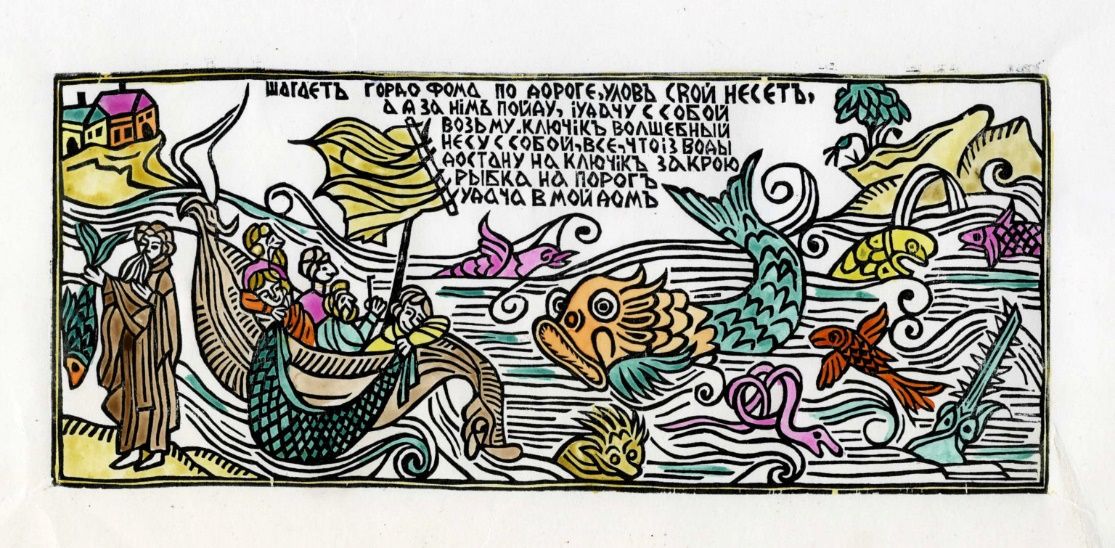 ШАГАЕТЪ ГОРДО ФОМА ПО ДОРОГЕ, УЛОВЪ СВОЙ НЕСЕТЪ,
ДА ЗА НІМЪ ПОЙДУ, ІУДАЧУ С СОБОЙ
ВОЗЬМУ. КЛЮЧІКЪ ВОЛШЕБНЫЙ
НЕСУ С СОБОЙ, ВСЕ, ЧТО ІЗ ВОДЫ
ДОСТАНУ НА КЛЮЧІКЪ ЗАКРОЮ
РЫБКА НА ПОРОГЪ
УДАЧА В МОЙ ДОМЪ